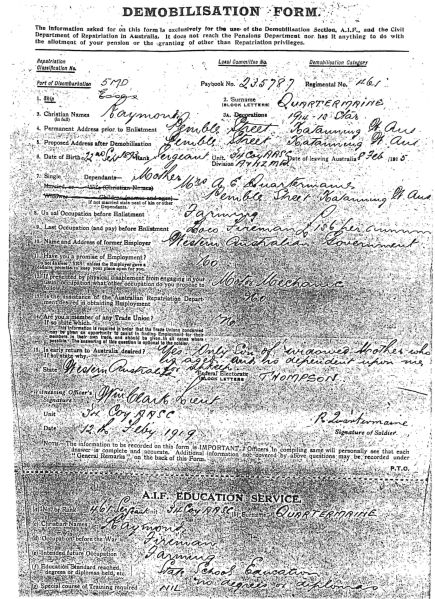 DEMOBILISATION FORM.
The information asked for on this form is exclusively for the use of the Demobilisation Section, A.I.F., and the Civil
Department of Repatriation in Australia. It does not reach the Pensions Department nor has it anything to do with
the allotment of your pension or the granting of other than Repatriation privileges.
Repatriation Classification No. Local Committee No. Demobilisation Category
Port of Disembarkation 5MD Paybook No. 235787 Regimental No. 461
1. Ship 2. Surname (BLOCK LETTERS) QUARTERMAINE
3. Christian Names (in full) Raymond 3a. Decorations 1914-15 Star
4. Permanent Address prior to Enlistment Pemble Street Katanning W Aus
5. Proposed Address after Demobilisation Pemble Street Katanning W Aus
6. Date of Birth Rank Sergeant Unit 3rd Coy AASC Division A & NZ MD Date of leaving Australia 8 Feb 1915
7. Single Dependants— Mother
Mrs A. E. Quartermaine
Pemble Street Katanning W Aus
If not married state next of kin or other Dependants.
8. Usual Occupation before Enlistment Farming
9. Last Occupation (and pay) before Enlistment Loco Fireman £136 per annum
10. Name and Address of former Employer Western Australian Government
Have you a promise of Employment? No
usual occupation what other occupation do you propose to Motor Mechanic
Is the assistance of the Australian Repatriation Department desired in obtaining Employment No
Are you a member of any Trade Union? If so state which. No
Is early return to Australia desired? If so state why. Yes. Only Son of widowed Mother who
is aged and is dependent upon me for support
State Western Australia Federal Electorate (BLOCK LETTERS) THOMPSON
Enlisting Officer's Signature Wm Clark Lieut
Unit 3rd Coy AASC R Quartermaine
Date 12th Feby 1919 Signature of Soldier.
Note.—The information to be recorded on this form is IMPORTANT. Officers in compiling same will personally see that each
answer is complete and accurate. Additional information not covered by above questions may be recorded under
"General Remarks", on the back of this Form.
P.T.O.
A.I.F. EDUCATION SERVICE.
461 Sergeant 3rd Coy AASC Surname QUARTERMAINE
Christian Names Raymond
Occupation before the War Fireman
Intended future Occupation Farming
Education Standard reached, degrees or diplomas held, etc. State School Education
no degrees or diplomas
Special course of Training required NIL